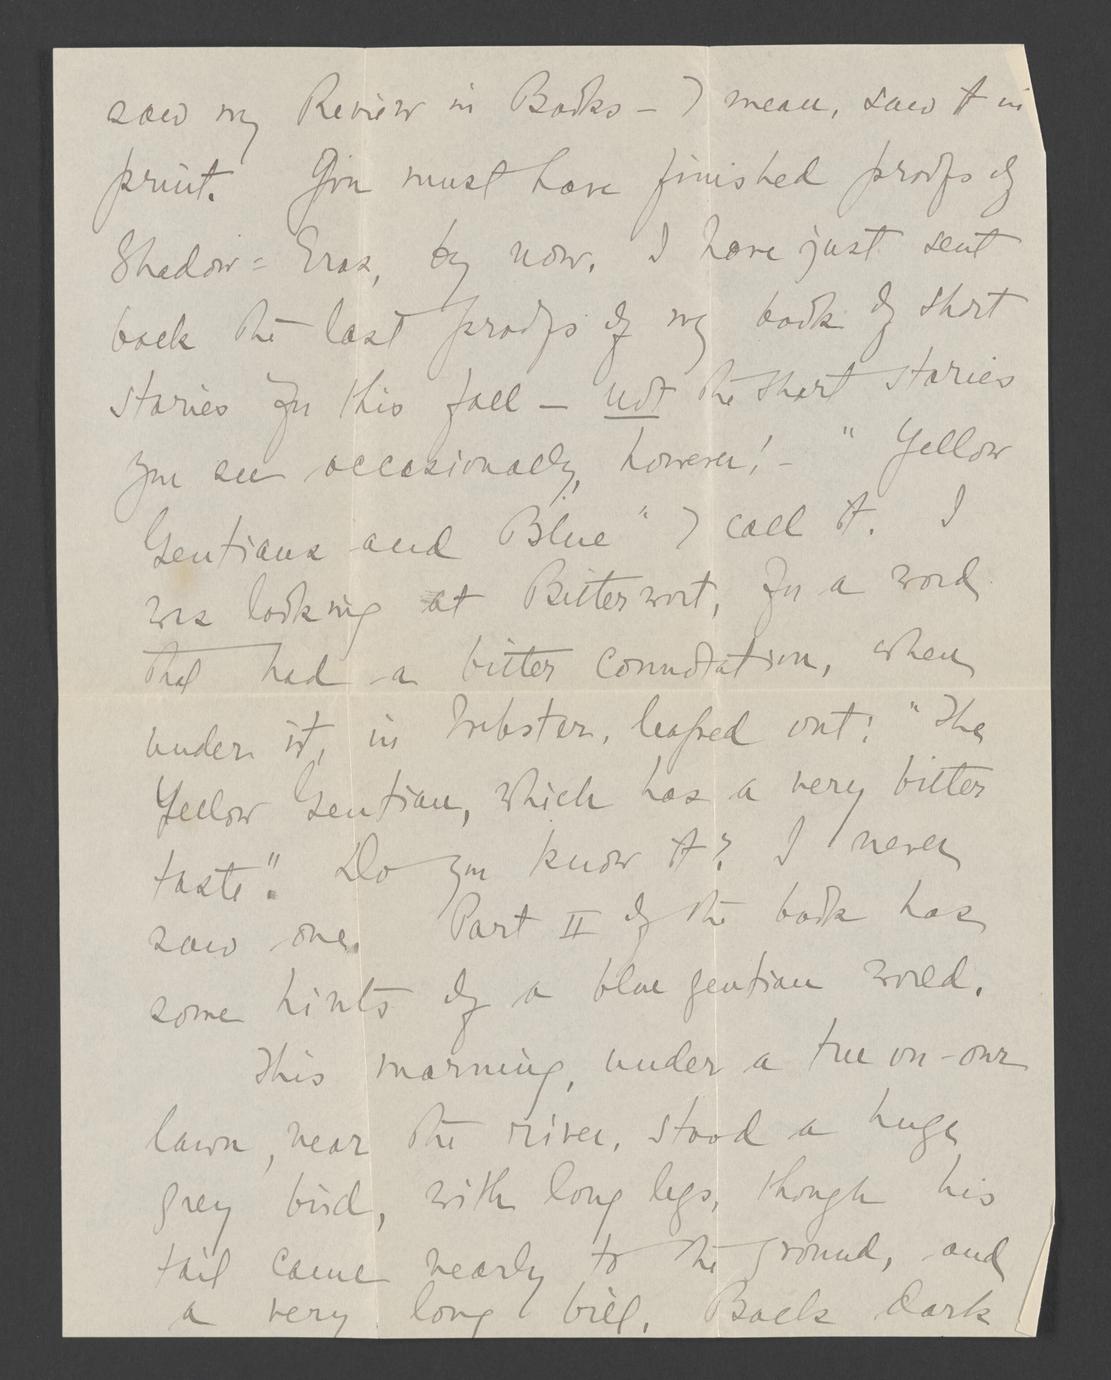 saw my Review in Books — I mean, saw it in
print. You must have finished proofs of
Shadow = Eros, by now. I have just sent
back the last proofs of my book of short
stories for this fall — not the short stories
you see occasionally, however! — " Yellow
Gentians and Blue " I call it. I
was looking at Bitterwort, for a word
that had a bitter connotation, when
under it, in Webster, leaped out: " The
Yellow Gentian, which has a very bitter
taste ". Do you know it? I never
saw one. Part II of the book has
some hints of a blue gentian world.
This morning, under a tree on - our
lawn, near the river, stood a huge
grey bird, with long legs, though his
tail came nearly to the ground, and
a very long bill. Back dark